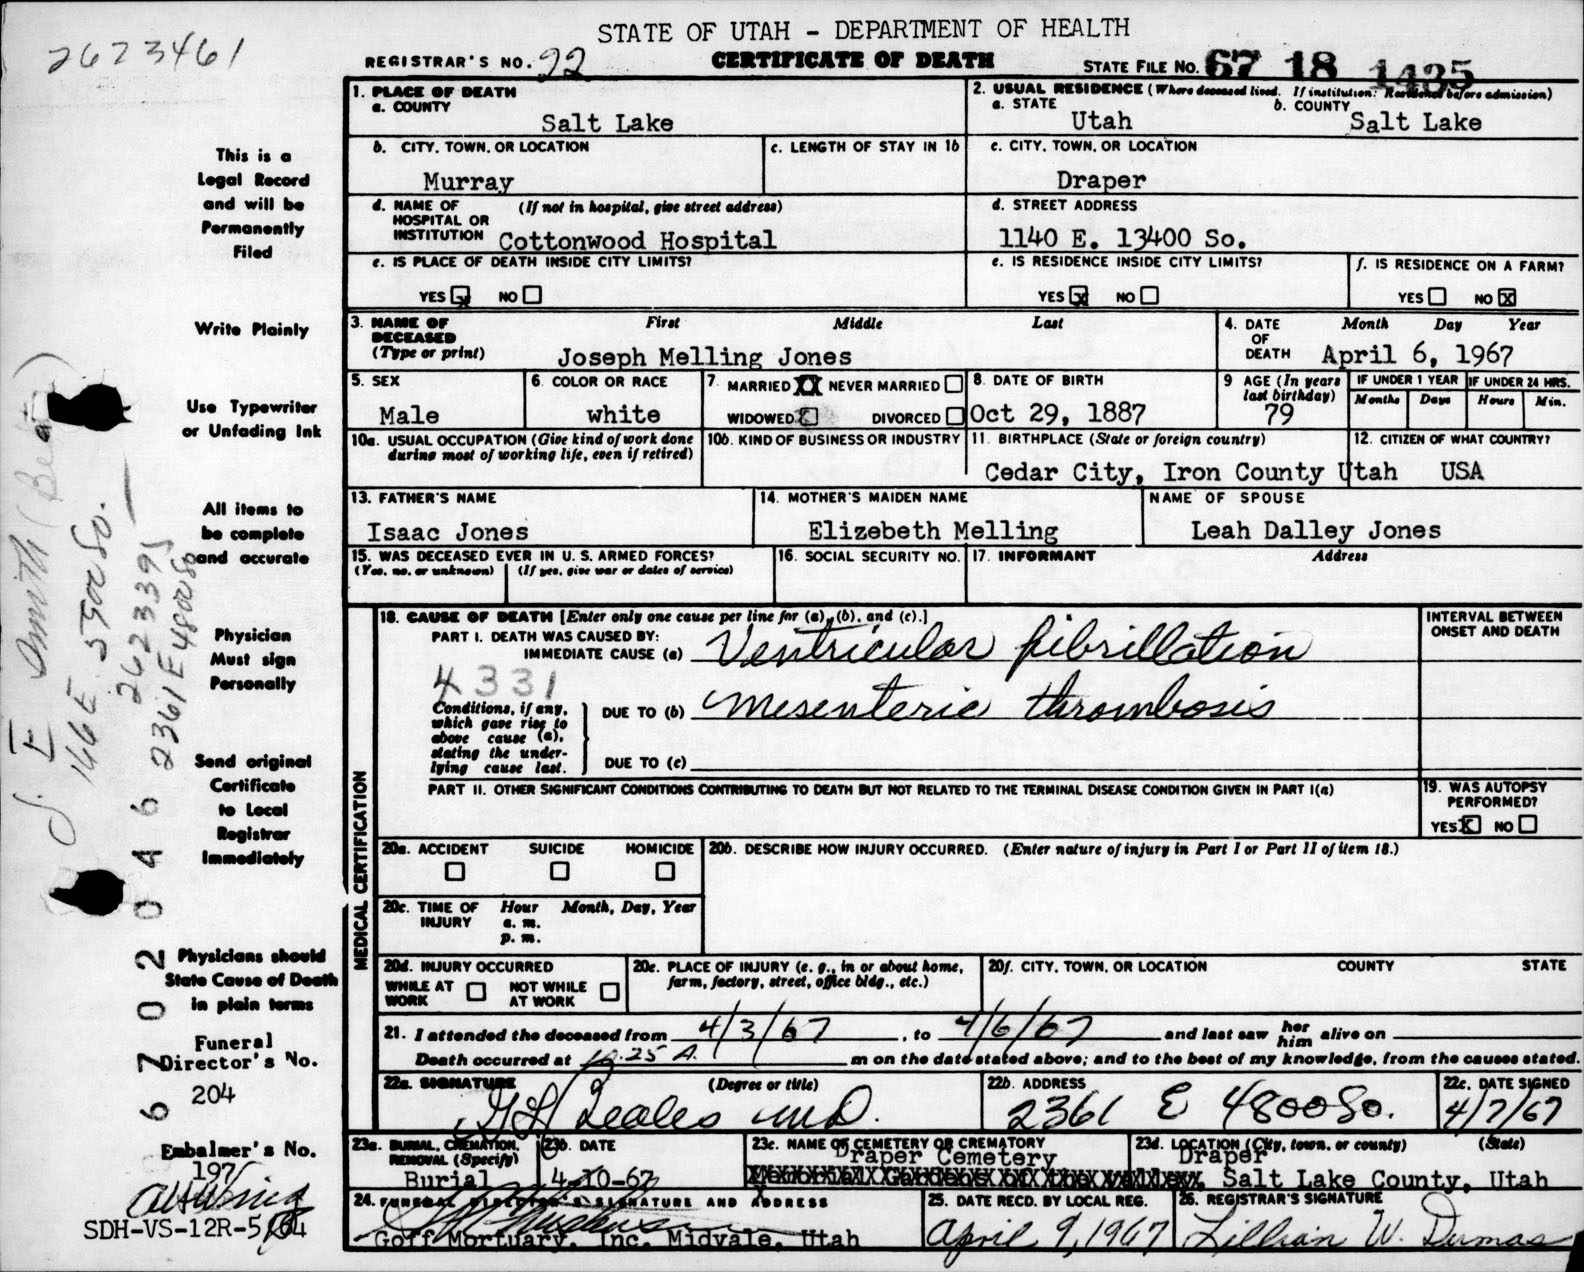 2623461
STATE OF UTAH - DEPARTMENT OF HEALTH
REGISTRAR'S NO. 92 CERTIFICATE OF DEATH STATE FILE NO. 67 18 1435
1. PLACE OF DEATH
a. COUNTY
Salt Lake
2. USUAL RESIDENCE (Where deceased lived. If institution: Residence before admission)
a. STATE b. COUNTY
Utah Salt Lake
b. CITY, TOWN, OR LOCATION
Murray
c. LENGTH OF STAY IN 1b
c. CITY, TOWN, OR LOCATION
Draper
d. NAME OF (If not in hospital, give street address)
HOSPITAL OR
INSTITUTION Cottonwood Hospital
d. STREET ADDRESS
1140 E. 13400 So.
e. IS PLACE OF DEATH INSIDE CITY LIMITS?
YES X NO
e. IS RESIDENCE INSIDE CITY LIMITS?
YES X NO
f. IS RESIDENCE ON A FARM?
YES NO X
3. NAME OF First Middle Last
DECEASED
(Type or print) Joseph Melling Jones
4. DATE Month Day Year
OF
DEATH April 6, 1967
5. SEX
Male
6. COLOR OR RACE
white
7. MARRIED XX NEVER MARRIED
WIDOWED DIVORCED
8. DATE OF BIRTH
Oct 29, 1887
9 AGE (In years
last birthday)
79
IF UNDER 1 YEAR
Months Days
IF UNDER 24 HRS.
Hours Min.
10a. USUAL OCCUPATION (Give kind of work done
during most of working life, even if retired)
10b. KIND OF BUSINESS OR INDUSTRY
11. BIRTHPLACE (State or foreign country)
Cedar City, Iron County Utah
12. CITIZEN OF WHAT COUNTRY?
USA
13. FATHER'S NAME
Isaac Jones
14. MOTHER'S MAIDEN NAME
Elizebeth Melling
NAME OF SPOUSE
Leah Dalley Jones
15. WAS DECEASED EVER IN U. S. ARMED FORCES?
(Yes, no, or unknown) (If yes, give war or dates of service)
16. SOCIAL SECURITY NO.
17. INFORMANT Address
MEDICAL CERTIFICATION
18. CAUSE OF DEATH [Enter only one cause per line for (a), (b), and (c).]
PART I. DEATH WAS CAUSED BY:
IMMEDIATE CAUSE (a) Ventricular fibrillation
4331
Conditions, if any,
which gave rise to
above cause (a),
stating the under-
lying cause last.
DUE TO (b) Mesenteric thrombosis
DUE TO (c)
INTERVAL BETWEEN
ONSET AND DEATH
PART II. OTHER SIGNIFICANT CONDITIONS CONTRIBUTING TO DEATH BUT NOT RELATED TO THE TERMINAL DISEASE CONDITION GIVEN IN PART I(a)
19. WAS AUTOPSY
PERFORMED?
YES X NO
20a. ACCIDENT SUICIDE HOMICIDE
20b. DESCRIBE HOW INJURY OCCURRED. (Enter nature of injury in Part I or Part II of item 18.)
20c. TIME OF Hour Month, Day, Year
INJURY a. m.
p. m.
20d. INJURY OCCURRED
WHILE AT NOT WHILE
WORK AT WORK
20e. PLACE OF INJURY (e. g., in or about home,
farm, factory, street, office bldg., etc.)
20f. CITY, TOWN, OR LOCATION COUNTY STATE
21. I attended the deceased from 4/3/67, to 4/6/67 and last saw her him alive on
Death occurred at 10:25 A. m on the date stated above; and to the best of my knowledge, from the causes stated.
22a. SIGNATURE (Degree or title)
M.D.
22b. ADDRESS
2361 E 4800 So.
22c. DATE SIGNED
4/7/67
23a. BURIAL, CREMATION,
REMOVAL (Specify)
Burial
23b. DATE
4-10-67
23c. NAME OF CEMETERY OR CREMATORY
Draper Cemetery
Memorial Gardens of the valley
23d. LOCATION (City, town, or county) (State)
Draper
Salt Lake County, Utah
24. FUNERAL DIRECTOR'S SIGNATURE AND ADDRESS
Goff Mortuary, Inc. Midvale, Utah
25. DATE RECD. BY LOCAL REG.
April 9, 1967
26. REGISTRAR'S SIGNATURE
Lillian W. Dumas
This is a
Legal Record
and will be
Permanently
Filed
Write Plainly
Use Typewriter
or Unfading Ink
All items to
be complete
and accurate
Physician
Must sign
Personally
Send original
Certificate
to Local
Registrar
Immediately
Physicians should
State Cause of Death
in plain terms
Funeral
Director's No.
204
Embalmer's No.
197
SDH-VS-12R-5/64
J. E Smith (Bea)
166 E 5900 So.
2623395
2361 E 4800 So
6 7 0 2 0 4 6